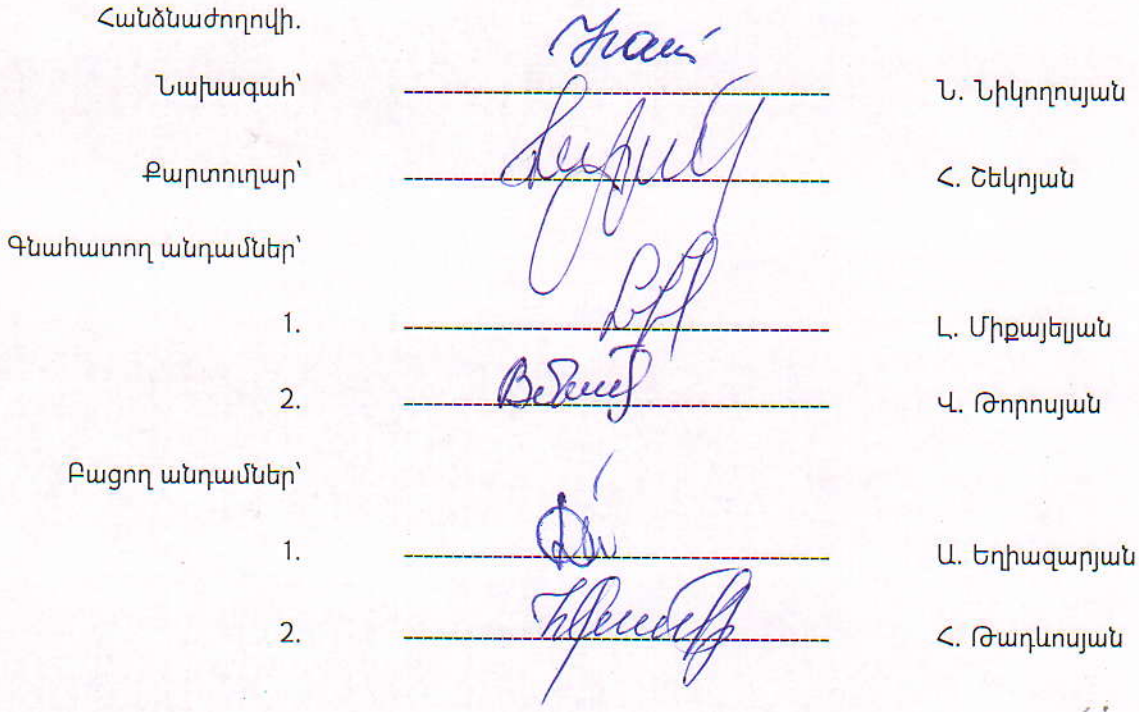 Հանձնաժողովի.
Նախագահ՝ Ն. Նիկողոսյան
Քարտուղար՝ Հ. Շեկոյան
Գնահատող անդամներ՝
1. Լ. Միքայելյան
2. Վ. Թորոսյան
Բացող անդամներ՝
1. Ա. Եղիազարյան
2. Հ. Թադևոսյան